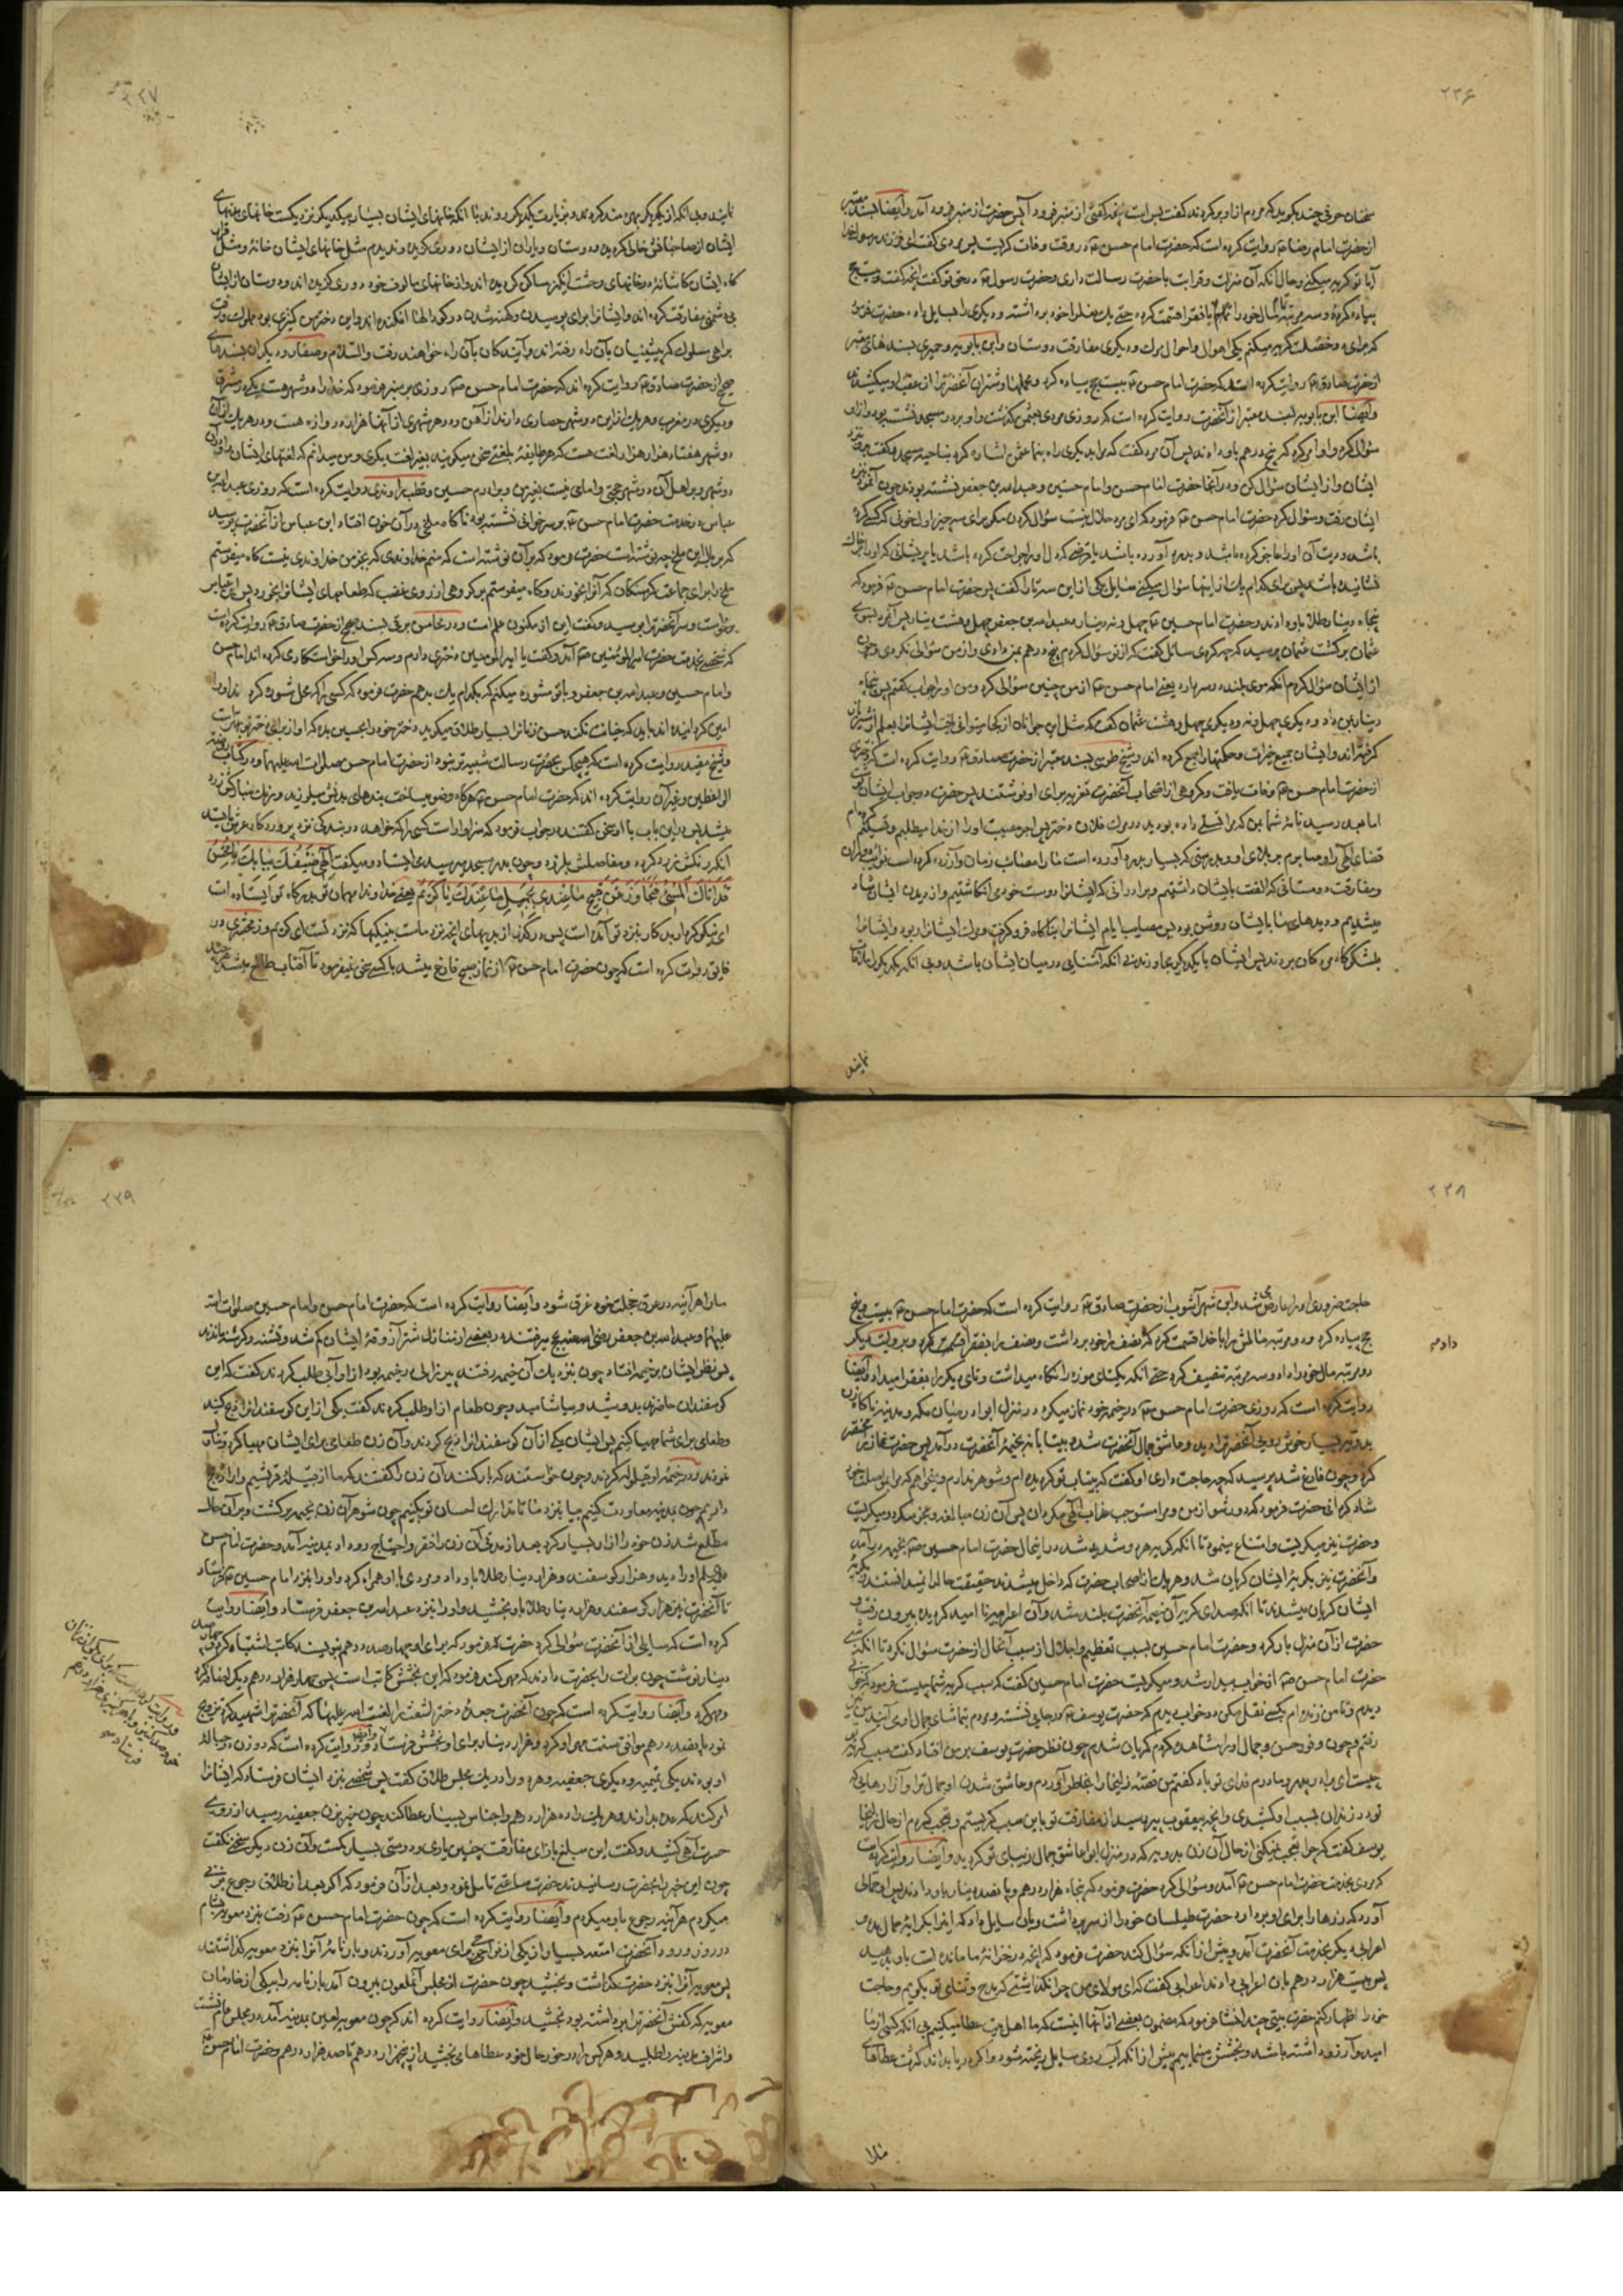 ۲۳۶
سخنان حرفی چند بگوید که مردم از او برگردند گفت بس است پس حضرت از منبر فرود آمد و ایضا بسند معتبر
از حضرت امام رضا روایت کرده است که حضرت امام حسن در وقت وفات گریست پس مردی گفت ای فرزند رسول خدا
آیا تو گریه میکنی و حال آنکه آن منزلت و قرابت با حضرت رسالت داری و حضرت رسول در حق تو گفت آنچه گفت و بیست حج
پیاده کرده و سه مرتبه مال خود را تمام با فقرا قسمت کرده حتی یک نعل را خود برداشته و دیگری را بسایل داده حضرت فرمود
که برای دو خصلت گریه میکنم یکی اهوال و احوال مرگ و دیگری مفارقت دوستان و ابن بابویه و حمیری بسندهای معتبر
از حضرت صادق روایت کرده است که حضرت امام حسن بیست حج پیاده کرد و محملها و شتران آنحضرت را از عقب او میکشیدند
و ایضا ابن بابویه بسند معتبر از آنحضرت روایت کرده است که روزی مردی بعثمان گذشت و او بر در مسجد نشسته بود و از او
سؤال کرد و او امر کرد که پنج درهم باو دادند پس آن مرد گفت که مرا بدیگری راه بنما عثمان اشاره کرد بناحیه مسجد و گفت برو نزد
ایشان و از ایشان سؤال کن و در آنجا حضرت امام حسن و امام حسین و عبدالله بن جعفر نشسته بودند چون آنمرد نزد
ایشان رفت و سؤال کرد حضرت امام حسن فرمود که ای مرد حلال نیست سؤال کردن مگر برای سه چیز اول خونی که کسی کرده
باشد و دیت آن او را عاجز کرده باشد و بدرد آورده باشد یا قرضی که دل او را جراحت کرده باشد یا پریشانی که او را بر خاک
نشانیده باشد پس برای کدام یک از اینها سؤال میکنی سایل یکی از این سه تا را گفت پس حضرت امام حسن فرمود که
پنجاه دینار طلا باو دادند و حضرت امام حسین چهل و نه دینار و عبدالله بن جعفر چهل و هشت دینار پس آنمرد بسوی
عثمان برگشت عثمان پرسید که چه کردی سائل گفت که از تو سؤال کردم پنج درهم بمن دادی و از من سؤالی نکردی و چون
از ایشان سؤال کردم آنکه موی بلند در سر دارد یعنی امام حسن از من چنین سؤالی کرد و من او را جواب گفتم پس پنجاه
دینار بمن داد و دیگری چهل و نه و دیگری چهل و هشت عثمان گفت که مثل این جوانان از کجا میتوانی یافت ایشان را بعلم از شیر باز
گرفته اند و ایشان جمیع خیرات و حکمتها را جمع کرده اند و شیخ طوسی بسند معتبر از حضرت صادق روایت کرده است که دختری
از حضرت امام حسن وفات یافت و گروهی از اصحاب آنحضرت تعزیه برای او نوشتند پس حضرت در جواب ایشان نوشت
اما بعد رسید نامه شما بمن که مرا تسلی داده بودید در مرگ فلان دختر پس اجر مصیبت او را از خدا میطلبم و تسلیم کرده ام
قضای الهی را و صابرم بر بلای او و بدرستی که بسیار بدرد آورده است ما را مصائب زمان و آزرده کرده است نوائب دوران
و مفارقت دوستانی که الفت بایشان داشتیم و برادرانی که ایشان را دوست خود می انگاشتیم و از دیدن ایشان شاد
میشدیم و دیدهای ما بایشان روشن بود پس مصایب ایام ایشان را بناگاه فرو گرفت و مرگ ایشان را ربود و ایشان را
بلشکرگاه مردگان بردند پس ایشان با یکدیگر مجاورند بی آنکه آشنایی در میان ایشان باشد و بی آنکه یکدیگر را ملاقات
نمایند
۲۳۷
نمایند و بی آنکه از یکدیگر بهره مند گردند و بزیارت یکدیگر روند با آنکه خانهای ایشان بسیار بیکدیگر نزدیکست خانهای بدنهای
ایشان از صاحبانش خالی گردیده و دوستان و یاران از ایشان دوری گزیدند و ندیدم مثل خانهای ایشان خانه و مثل قرار
گاه ایشان کاشانه در خانهای وحشت انگیز ساکن گردیده اند و از خانهای مألوف خود دوری گزیده اند و دوستان از ایشان
بی دشمنی مفارقت کرده اند و ایشان را برای پوسیدن و کهنه شدن در گودالها افکنده اند و این دختر من کنیزی بود مملوک و رفت
براهی سلوک که پیشینیان بآن راه رفته اند و آیندگان بآن راه خواهند رفت والسلام و صفار و دیگران بسندهای
صحیح از حضرت صادق روایت کرده اند که حضرت امام حسن روزی بر منبر فرمود که خدا را دو شهر هست یکی در مشرق
و دیگری در مغرب و هر یک از این دو شهر حصاری دارند از آهن و در هر شهری از آنها هزار هزار دروازه هست و در هر یک از آن
دو شهر هفتاد هزار هزار لغت هست که هر طایفه بلغتی سخن میگویند بغیر لغت دیگری و من میدانم که لغتهای ایشان را و بر آن
دو شهر و بر اهل آن دو شهر حجتی و امامی نیست بغیر من و برادرم حسین و قطب راوندی روایت کرده است که روزی عبدالله بن
عباس در خدمت حضرت امام حسن بر سر خوانی نشسته بود ناگاه ملخی در آن خوان افتاد ابن عباس از آنحضرت پرسید
که بر بال این ملخ چه نوشته است حضرت فرمود که بر آن نوشته است که منم خداوندی که بجز من خداوندی نیست گاه میفرستم
ملخ را برای جماعتی گرسنگان که آنرا بخورند و گاه میفرستم بر گروهی از روی غضب که طعامهای ایشان را بخورد پس ابن عباس
برخاست و سر آنحضرت را بوسید و گفت این از مکنون علم است و در محاسن برقی بسند صحیح از حضرت صادق روایت کرده است
که شخصی بخدمت حضرت امیرالمؤمنین آمد و گفت یا امیرالمؤمنین دختری دارم و سه کس او را خواستگاری کرده اند امام حسن
و امام حسین و عبدالله بن جعفر و با تو مشوره میکنم که بکدام یک بدهم حضرت فرمود که کسی را که محل مشورت کرده اند او را
امین گردانیده اند باید که خیانت نکند حسن زنان را بسیار طلاق میگوید دختر خود را بحسین بده که او از برای دختر تو بهتر است
و شیخ مفید روایت کرده است که هیچکس بحضرت رسالت شبیه تر نبود از حضرت امام حسن صلوات الله علیهما و در کتاب روضة
الواعظین و غیر آن روایت کرده اند که حضرت امام حسن هرگاه وضو میساخت بندهای بدنش میلرزید و رنگ مبارکش زرد
میشد پس در این باب با او سخن گفتند در جواب فرمود که سزاوار است کسی را که خواهد در بندگی نزد پروردگار عرش بایستد
آنکه رنگش زرد گردد و مفاصلش بلرزد و چون بدر مسجد میرسید می ایستاد و میگفت الهی ضیفک ببابک یا محسن
قد اتاک المسیء فتجاوز عن قبیح ما عندی بجمیل ما عندک یا کریم یعنی خداوندا مهمان تو بدرگاه تو ایستاده است
ای نیکو کردار بدکار بنزد تو آمده است پس درگذر از بدیهای آنچه نزد ماست بنیکیها که نزد تست ای کریم و زمخشری در
فایق روایت کرده است که چون حضرت امام حسن از نماز صبح فارغ میشد با کسی سخن نمیفرمود تا آفتاب طالع میشد هر چند
۲۳۸
حاجت ضروری او را عارض میشد و ابن شهر آشوب از حضرت صادق روایت کرده است که حضرت امام حسن بیست و پنج
حج پیاده کرد و دو مرتبه مالش را با خدا قسمت کرد که نصف را خود برداشت و نصف را بفقرا قسمت کرد و بروایت دیگر
دو مرتبه مال خود را داد و سه مرتبه تنصیف کرد حتی آنکه یکتای موزه را نگاه میداشت و تای دیگر را بفقرا میداد و ایضا
روایت کرده است که روزی حضرت امام حسن در خیمه خود نماز میکرد در منزل ابوا در میان مکه و مدینه ناگاه زن
بدویه بسیار خوش رویی آنحضرت را دید و عاشق جمال آنحضرت شده بیتابانه بخیمه آنحضرت در آمد پس حضرت نماز را مختصر
کرد و چون فارغ شد پرسید که چه حاجت داری او گفت که بیتاب تو گردیده ام و شوهر ندارم و میخواهم که مرا بوصال خود
شاد گردانی حضرت فرمود که دور شو از من و مرا مستوجب عذاب الهی مگردان پس آن زن مبالغه و عجز میکرد و میگریست
و حضرت نیز میگریست و امتناع مینمود تا آنکه گریه هر دو شدید شد در اینحال حضرت امام حسین بخیمه در آمد
و آنحضرت نیز بگریه ایشان گریان شد و هر یک از اصحاب حضرت که داخل میشدند حقیقت حال را نمیدانستند بگریه
ایشان گریان میشدند تا آنکه صدای گریه از خیمه آنحضرت بلند شد و آن اعرابیه نا امید گردیده بیرون رفت و
حضرت از آن منزل بار کرد و حضرت امام حسین بسبب تعظیم و اجلال از سبب آنحال از حضرت سؤال نکرد تا آنکه شبی
حضرت امام حسن از خواب بیدار شد و میگریست حضرت امام حسین گفت که سبب گریه شما چیست فرمود که خوابی
دیدم و تا من زنده ام بکسی نقل مکن در خواب دیدم که حضرت یوسف در جایی نشسته و مردم بتماشای جمال او می آیند من نیز
رفتم و چون وفور حسن و جمال او را مشاهده کردم گریان شدم چون نظر حضرت یوسف بر من افتاد گفت سبب گریه تو
چیست ای برادر پدر و مادرم فدای تو باد گفتم من قصه زلیخا را بخاطر آوردم و عاشق شدن او جمال ترا و آزارهایی که
تو در زندان بسبب او کشیدی و آنچه بیعقوب پیر رسید از مفارقت تو باین سبب گریستم و تعجب کردم از حال زلیخا
یوسف گفت که چرا تعجب نمیکنی از حال آن زن بدویه که در منزل ابوا عاشق جمال زیبای تو گردید و ایضا روایت کرده است
که مردی بخدمت حضرت امام حسن آمد و سؤالی کرد حضرت فرمود که پنجاه هزار درهم و پانصد دینار باو دادند پس او حمالی
آورد که زرها را برای او بردارد حضرت طیلسان خود را از سر برداشت و بآن سایل داد که این را بکرایه حمال بده و
اعرابی دیگر بخدمت آنحضرت آمد و پیش از آنکه سؤال کند حضرت فرمود که آنچه در خزانه ما مانده است باو بدهید
پس بیست هزار درهم بآن اعرابی دادند اعرابی گفت که ای مولای من چرا نگذاشتی که مدح و ثنای تو بگویم و حاجت
خود را اظهار کنم حضرت بیتی چند انشا فرمود که مضمون بعضی از آنها اینست که ما اهل بیت عطا میکنیم بی آنکه کسی از ما
امید و آرزو داشته باشد و بخشش مینماییم پیش از آنکه آب روی سایل ریخته شود و اگر دریا بداند کثرت عطاهای
مارا
۲۳۹
ما را هر آینه در عرق خجلت خود غرق شود و ایضا روایت کرده است که حضرت امام حسن و امام حسین صلوات الله
علیهما و عبدالله بن جعفر رضی الله عنه بحج میرفتند در بعضی از منازل شتر آزوقه ایشان گم شد و تشنه و گرسنه ماندند
پس نظر ایشان بر خیمه افتاد چون بنزدیک آن خیمه رفتند پیر زالی در خیمه بود از او آبی طلب کردند گفت که این
گوسفندان حاضرند بدوشید و بیاشامید و چون طعام از او طلب کردند گفت یکی از این گوسفندان را ذبح کنید
و طعامی برای شما مهیا کنم پس ایشان یکی از آن گوسفندان را ذبح کردند و آن زن طعامی برای ایشان مهیا کرد تناول
نمودند و در خیمه او قیلوله کردند و چون خواستند که بار کنند آن زن را گفتند که ما از قبیله قریشیم و اراده حج
داریم چون بمدینه معاودت کنیم بیا بنزد ما تا تدارک احسان تو بکنیم چون شوهر آن زن بخیمه برگشت و بر آن حال
مطلع شد زن خود را آزار بسیار کرد بعد از مدتی آن زن را فقر و احتیاج رو داد بمدینه آمد و حضرت امام حسن
او را دید و هزار گوسفند و هزار دینار طلا باو داد و مردی با او همراه کرد و او را بنزد امام حسین فرستاد
تا آنحضرت نیز هزار گوسفند و هزار دینار طلا باو بخشید و او را بنزد عبدالله بن جعفر فرستاد و ایضا روایت
کرده است که سایلی از آنحضرت سؤالی کرد حضرت فرمود که برای او چهار صد درهم بنویسند کاتب اشتباه کرد و چهار صد
دینار نوشت چون برات را بحضرت دادند که مهر کند فرمود که این بخشش کاتب است پس چهار هزار درهم دیگر اضافه کرد
و مهر کرد و ایضا روایت کرده است که چون آنحضرت جعده دختر اشعث را لعنت الله علیها که آنحضرت را شهید کرد تزویج
نمود پانصد درهم موافق سنت مهر او کرد و هزار دینار برای او بخشش فرستاد و روایت کرده است که دو زن در حباله
او بودند یکی تمیمیه و دیگری جعفیه و هر دو را در یک مجلس طلاق گفت پس شخصی بنزد ایشان فرستاد که ایشان را
امر کند که عده بدارند و هر یک را ده هزار درهم و اجناس بسیار عطا کند چون خبر بزن جعفیه رسید از روی
حسرت آهی کشید و گفت این مبلغ بازای مفارقت چنین یاری و دوستی بسیار کمست و آن زن دیگر سخن نگفت
چون این خبر را بحضرت رسانیدند حضرت ساعتی تأمل نمود و بعد از آن فرمود که اگر بعد از طلاق رجوع بزنی
میکردم هر آینه رجوع باو میکردم و ایضا روایت کرده است که چون حضرت امام حسن رفت بنزد معویه بشام
در روز ورود آنحضرت امتعه بسیار از یکی از نواحی برای معویه آوردند و بارنامه آنرا بنزد معویه گذاشتند
پس معویه آنرا بنزد حضرت گذاشت و بخشید چون حضرت از مجلس آنملعون بیرون آمد بارنامه را بیکی از خادمان
معویه که کفش آنحضرت را برداشته بود بخشید و ایضا روایت کرده اند که چون معویه لعین بمدینه آمد در مجلس عام نشست
و اشراف مدینه را طلبید و هر کس را در خور حال خود عطاهای بخشید از پنجهزار درهم تا صد هزار درهم و حضرت امام حسن